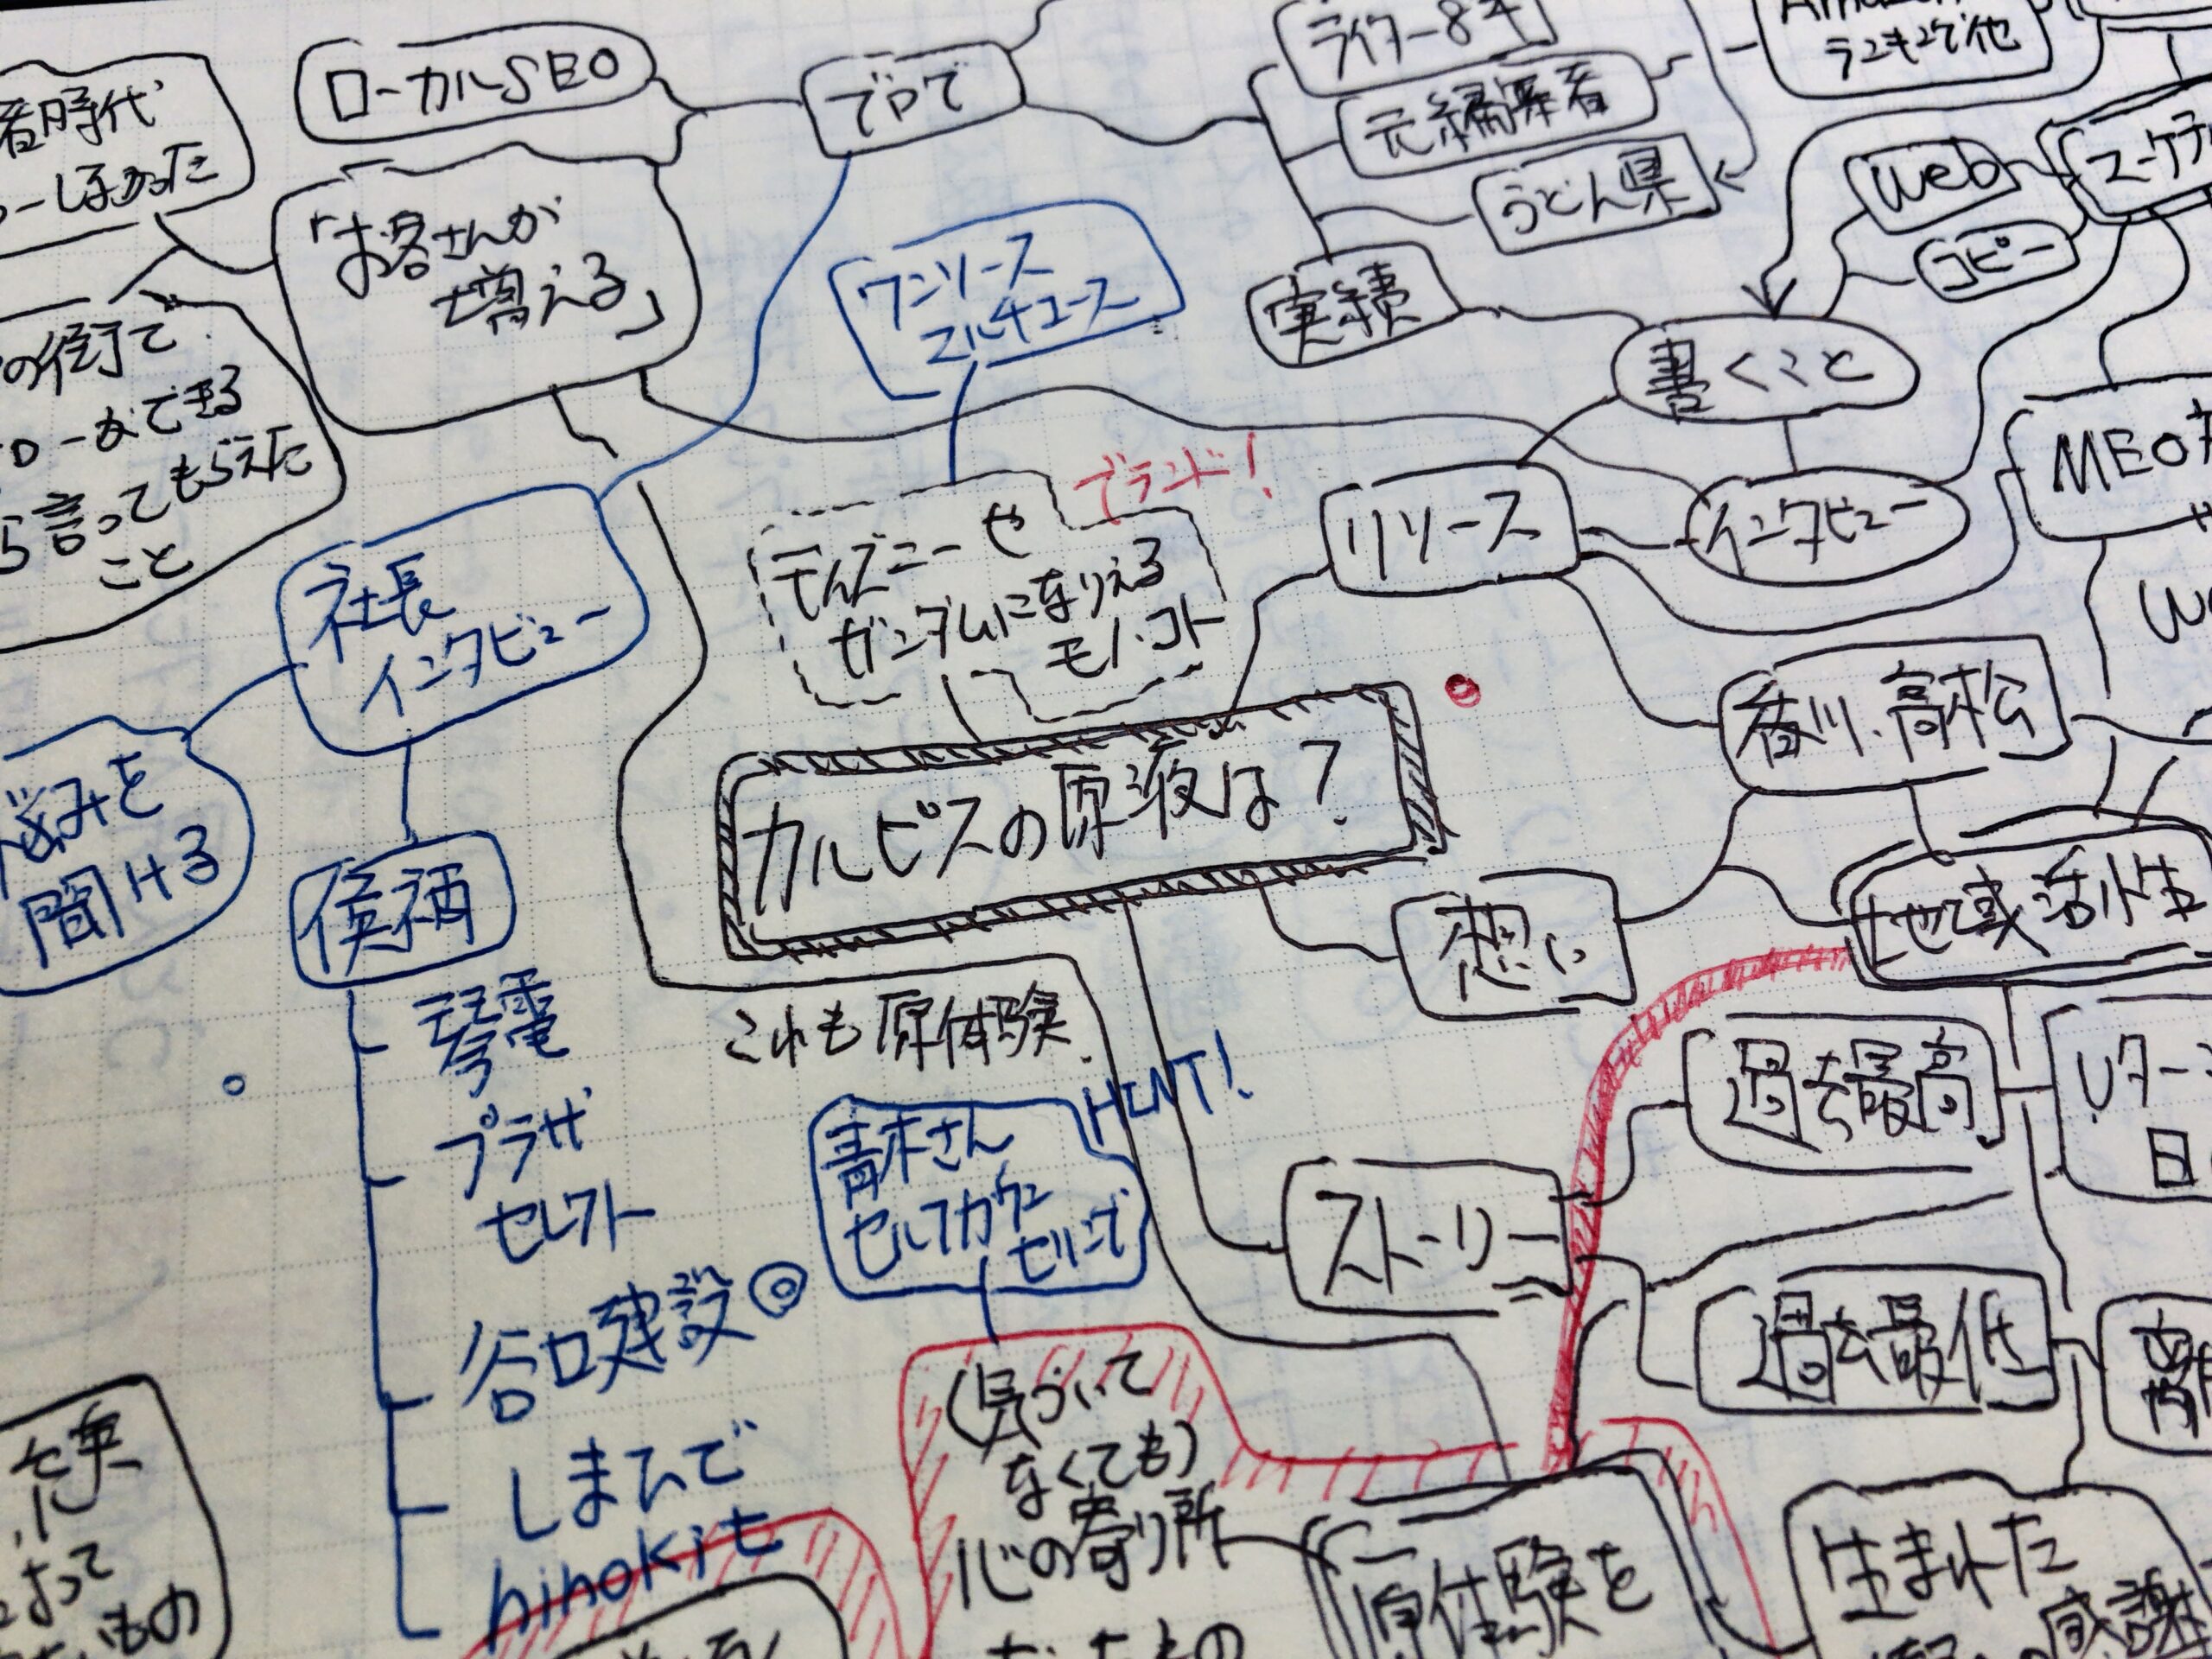 ローカルSEO
ブログ
ライター8年
元編集者
うどん県
実績
ランキング他
Web
コピー
書くこと
時代
しほかった
「お客さんが
増える」
ワンソース
マルチユース
の街で
ができる
言ってもらえた
こと
ブランド!
ディズニーや
ガンダムになりえる
モノ・コト
リソース
インタビュー
MEO
社長
インタビュー
香川・高松
悩みを
聞ける
カルピスの原液は?
候補
想い
地域活性
琴電
プラザ
セレクト
谷口建設◎
しまひで
hinokit
これも原体験
HINT!
青木さん
セルフカウン
セリング
ストーリー
過去最高
Uター
過去最低
(気づいて
なくても)
心の寄り所
原体験を
生まれた
感謝
もの